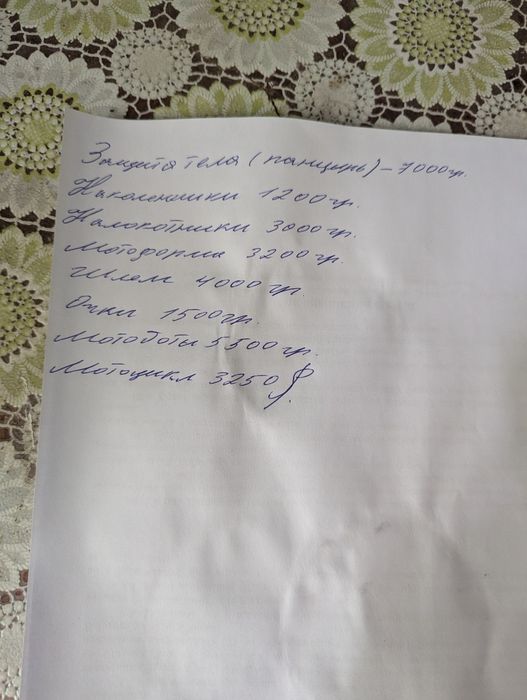 Защита тела (панцирь) - 7000гр.
Наколенники 1200гр.
Налокотники 3000гр.
Мотоформа 3200гр.
Шлем 4000гр.
Очки 1500гр.
Мотоботы 5500гр.
Мотоцикл 3250$.